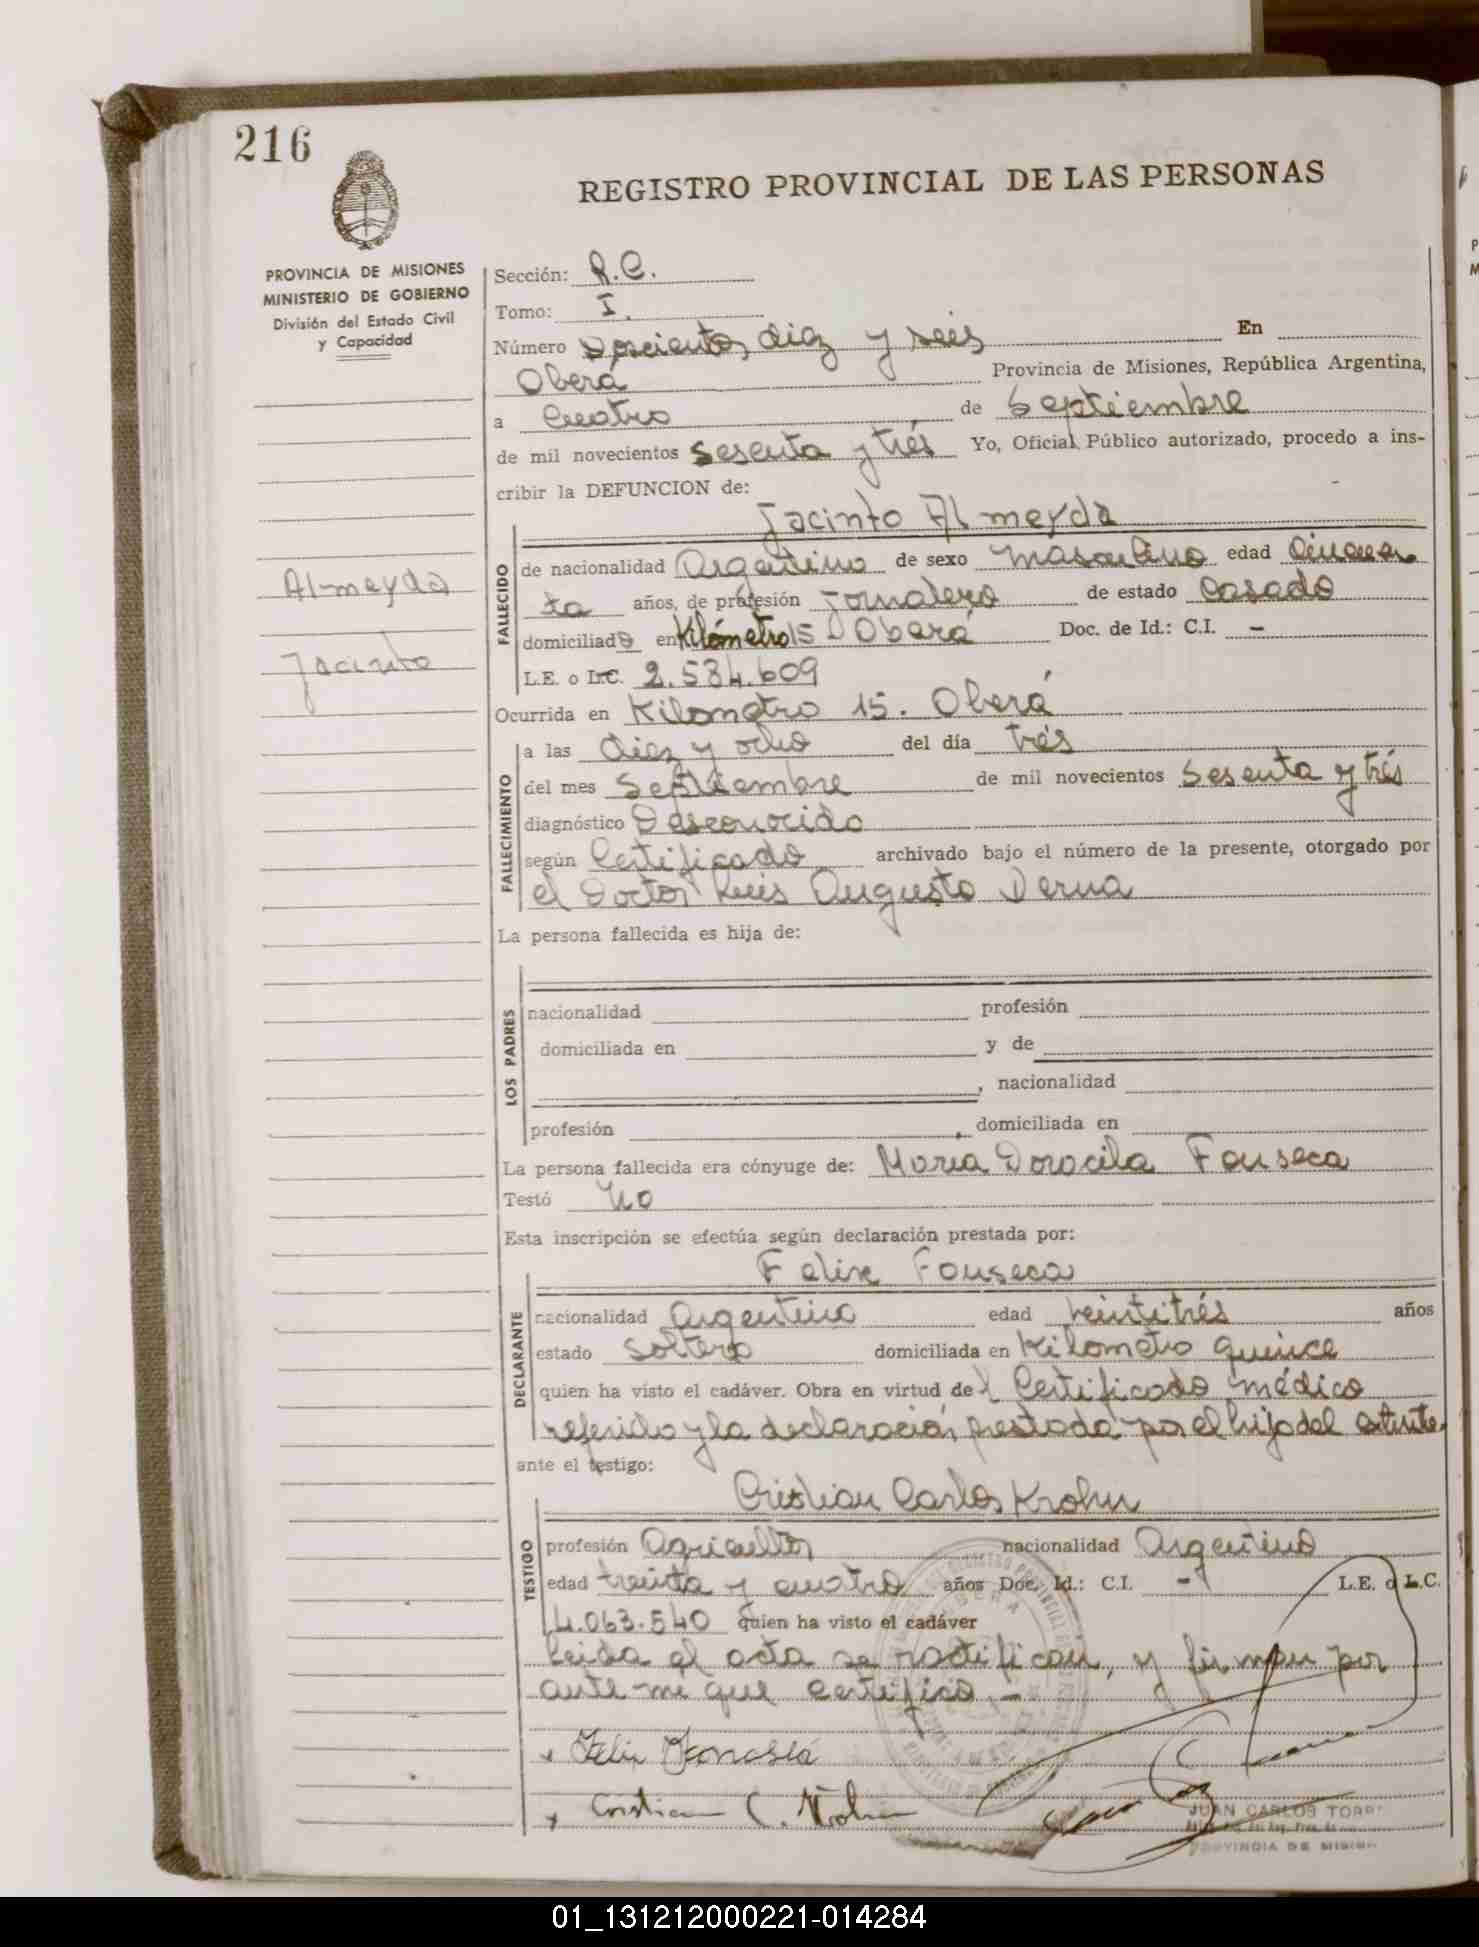 216
REGISTRO PROVINCIAL DE LAS PERSONAS
PROVINCIA DE MISIONES
MINISTERIO DE GOBIERNO
División del Estado Civil
y Capacidad
Sección: R.C.
Tomo: I.
Número Doscientos diez y seis En
Oberá Provincia de Misiones, República Argentina,
a Cuatro de Septiembre
de mil novecientos sesenta y trés Yo, Oficial Público autorizado, procedo a ins-
cribir la DEFUNCION de:
Jacinto Almeyda
Almeyda
Jacinto
FALLECIDO
de nacionalidad Argentino de sexo masculino edad Cincuen
ta años, de profesión Jornalero de estado Casado
domiciliado en Kilómetro 15 Oberá Doc. de Id.: C.I. -
L.E. o L.C. 2.534.609
Ocurrida en Kilometro 15. Oberá
FALLECIMIENTO
a las diez y ocho del día trés
del mes Septiembre de mil novecientos sesenta y trés
diagnóstico Desconocido
según Certificado archivado bajo el número de la presente, otorgado por
el Doctor Luis Augusto Derna
La persona fallecida es hija de:
LOS PADRES
nacionalidad profesión
domiciliada en y de
, nacionalidad
profesión , domiciliada en
La persona fallecida era cónyuge de: María Doracila Fonseca
Testó No
Esta inscripción se efectúa según declaración prestada por:
Felix Fonseca
DECLARANTE
nacionalidad Argentino edad veintitrés años
estado soltero domiciliada en Kilometro quince
quien ha visto el cadáver. Obra en virtud del Certificado médico
referido y la declaración prestada por el hijo del extinto
ante el testigo:
Cristian Carlos Krohn
TESTIGO
profesión Agricultor nacionalidad Argentino
edad treinta y cuatro años Doc. Id.: C.I. - L.E. o L.C.
4.063.540 quien ha visto el cadáver
Leida el acta se ratifican, y firman por
ante mi que certifico.-
Felix Fonseca
Cristian C. Krohn
JUAN CARLOS TORR
PROVINCIA DE MISION
01_131212000221-014284